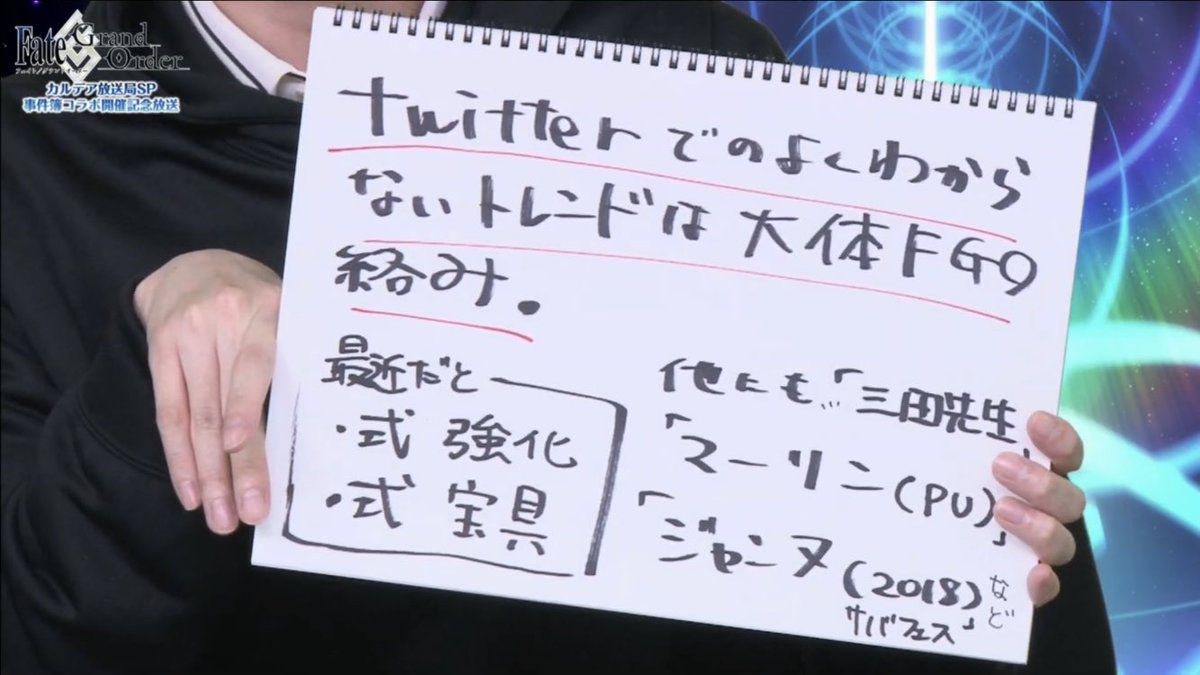 Fate Grand Order
フェイト/グランドオーダー
カルデア放送局SP
事件簿コラボ開催記念放送
twitterでのよくわから
ないトレンドは大体FGO
絡み。
最近だと
・式 強化
・式 宝具
他にも…「三田先生」
「マーリン(PU)」
「ジャンヌ(2018)」など
サバフェス